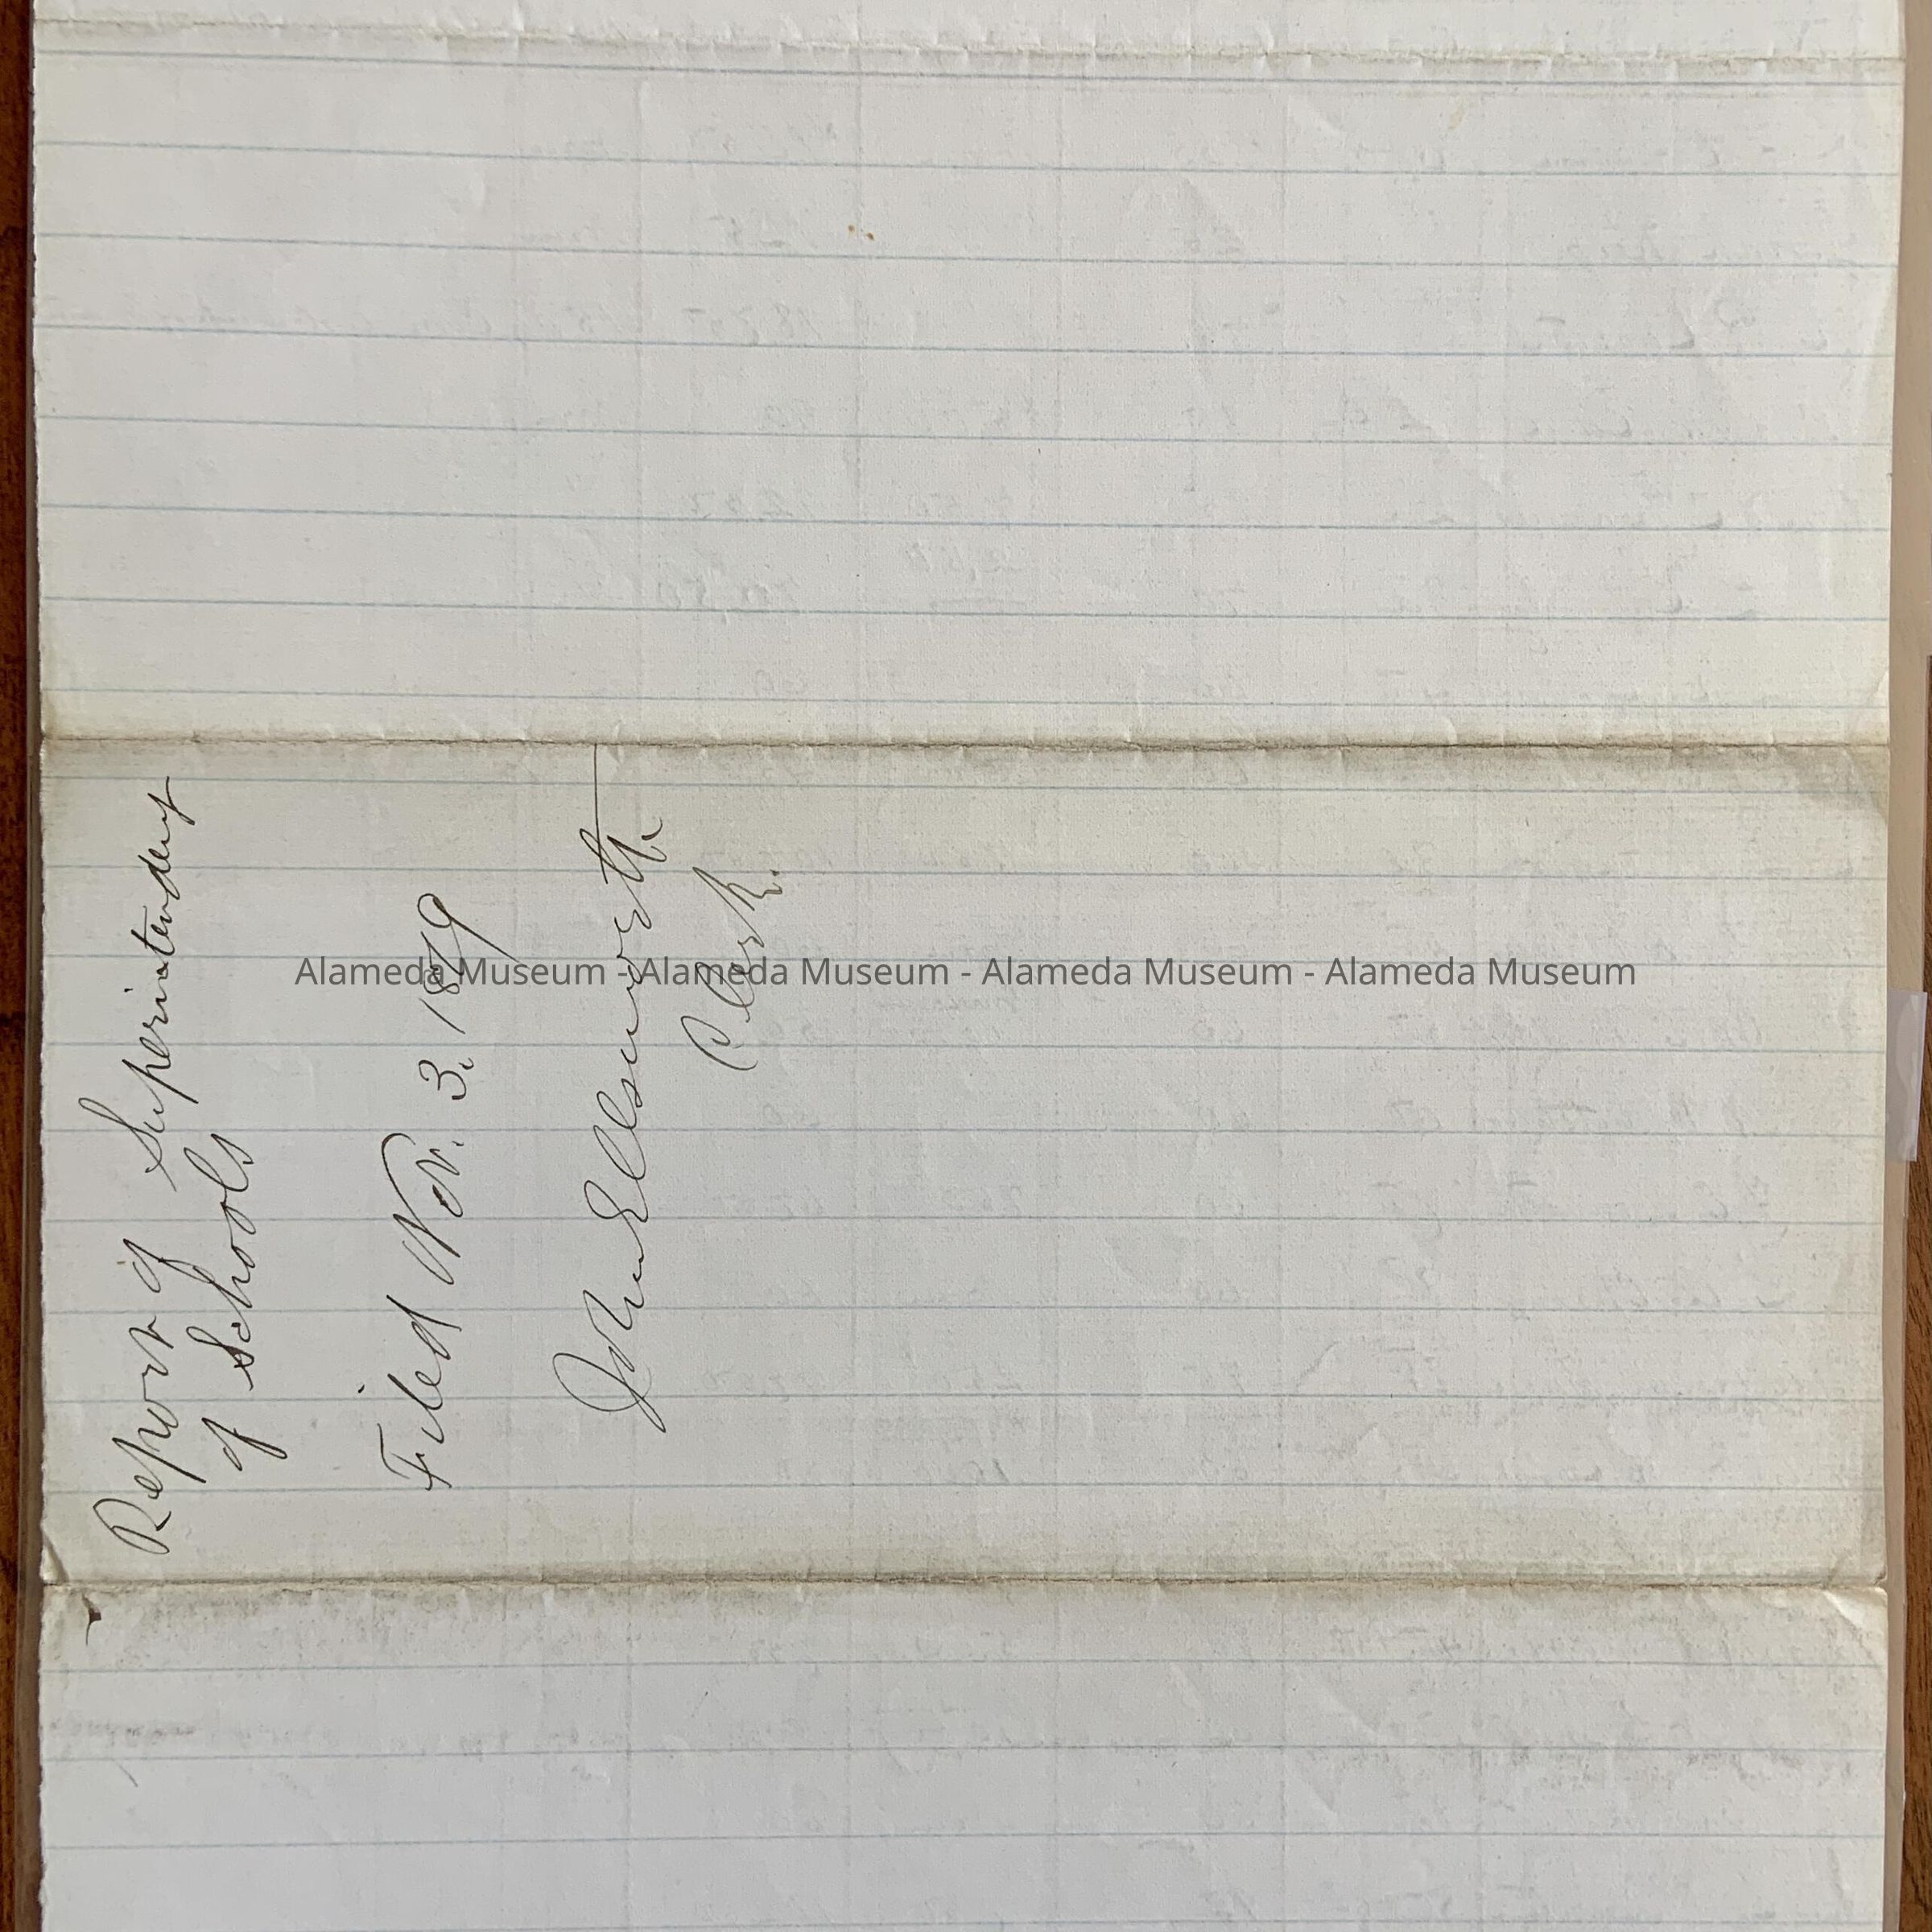 Report of Superintendent
of Schools
Filed Nov. 3. 1879
John Ellsworth.
Clerk.
Alameda Museum - Alameda Museum - Alameda Museum - Alameda Museum